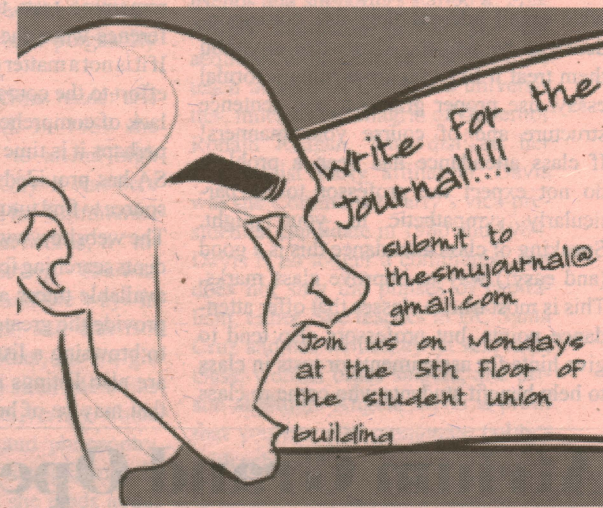 Write for the
Journal!!!!
submit to
thesmujournal@
gmail.com
Join us on Mondays
at the 5th floor of
the student union
building